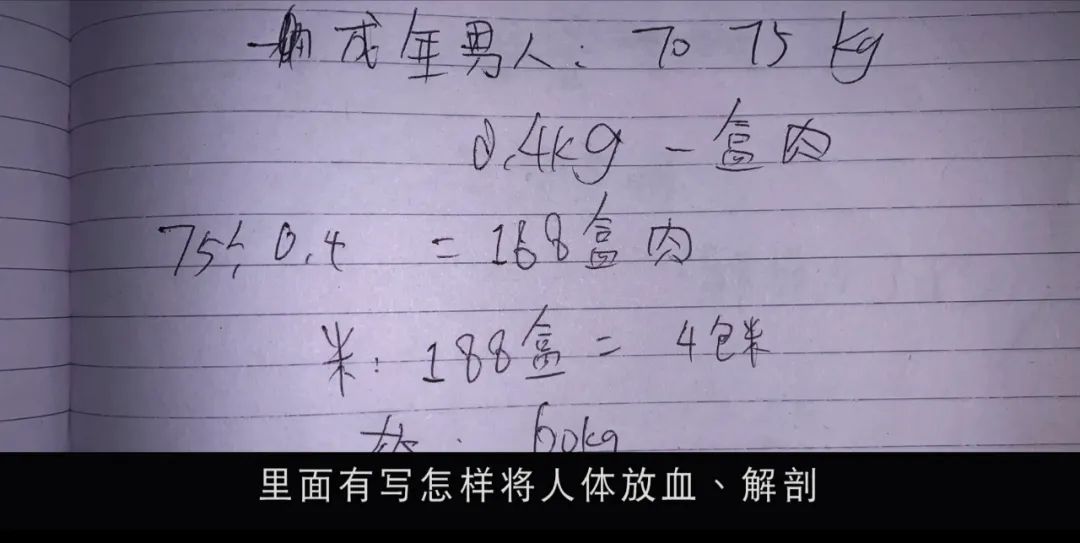 一個成年男人：70 75 kg
0.4kg － 盒肉
75÷0.4 = 188盒肉
米：188盒 = 4包米
60kg
里面有写怎样将人体放血、解剖